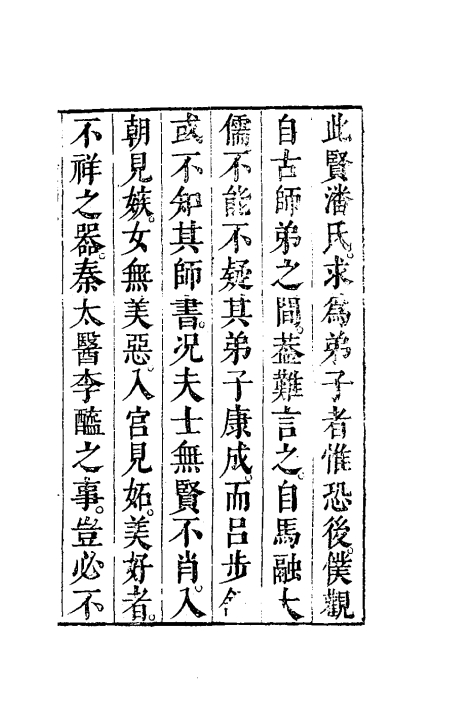 此賢潘氏。求為弟子者惟恐後。僕觀
自古師弟之間。葢難言之。自馬融大
儒不能不疑其弟子康成。而呂步
或不知其師書。况夫士無賢不肖。入
朝見嫉。女無美惡。入宮見妬。美好者。
不祥之器。秦太醫李醯之事。豈必不